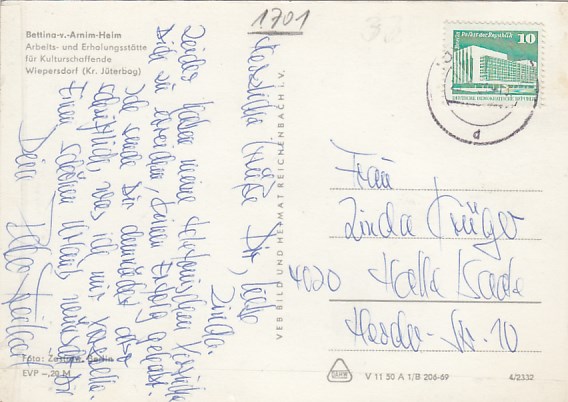 Bettina-v.-Arnim-Heim
Arbeits- und Erholungsstätte
für Kulturschaffende
Wiepersdorf (Kr. Jüterbog)
1701
Herzliche Grüße Dir, liebe
Linda.
Leider haben meine telefonischen Versuche
Dich zu erreichen, keinen Erfolg gehabt.
Ich sende Dir demnächst also
schriftlich, was ich mir vorstelle.
Einen schönen Urlaub wünscht Dir
Dein
Foto: Zettow, Berlin
EVP -,20 M
VEB BILD UND HEIMAT REICHENBACH i. V.
Palast der Republik
10
DEUTSCHE DEMOKRATISCHE REPUBLIK
Frau
Linda Krüger
4020 Halle Saale
Str. 10
V 11 50 A 1/B 206-69
4/2332